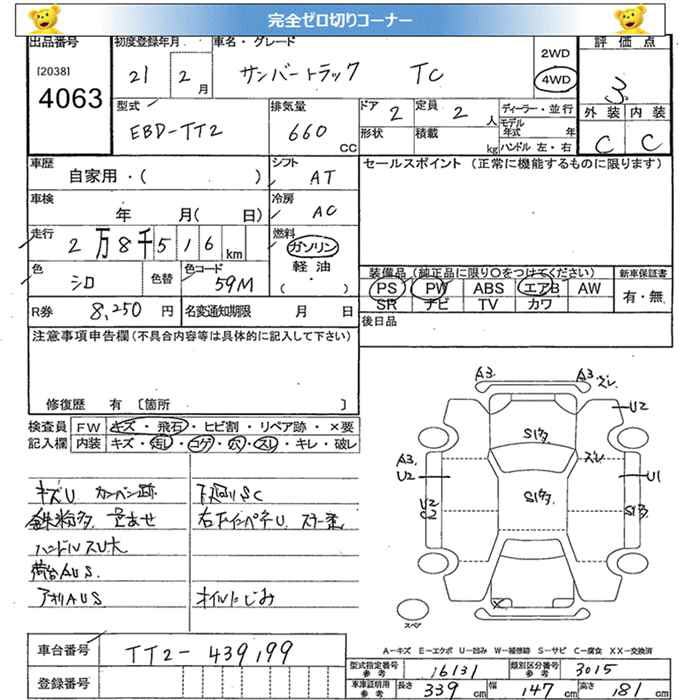 完全ゼロ切りコーナー
出品番号 初度登録年月 車名・グレード 2WD 評価点
[2038] 21年 2月 サンバートラック TC 4WD 3.5
4063 型式 排気量 ドア 2 定員 2人 ディーラー・並行 外装 内装
EBD-TT2 660cc 形状 積載 kg モデル年式 年 C C
ハンドル 左・右
車歴 シフト セールスポイント (正常に機能するものに限ります)
自家用・( ) AT
車検 冷房
年 月( 日) AC
走行 燃料
2万8千516km ガソリン
色 色替 色コード 軽油 装備品(純正品に限り○をつけてください) 新車保証書
シロ 59M (・) PS PW ABS エアB AW 有・無
SR ナビ TV カワ
R券 8,250円 名変通知期限 月 日 後日品
注意事項申告欄(不具合内容等は具体的に記入して下さい)
修復歴 有 〔箇所 〕
検査員 FW キズ・飛石・ヒビ割・リペア跡・×要
記入欄 内装 キズ・汚レ・コゲ・穴・スレ・キレ・破レ
キズU カンバン跡 下廻りSC
鉄粉多 色あせ 右下インペチU
ハンドルスU大
荷台AUS
アオリAUS オイルにじみ
A3 A3 ズレ
U2
S1多
A3 ズレ
U2 U1
S1多
U2 S1多
C2
X
スペア
A-キズ E-エクボ U-凹み W-補修跡 S-サビ C-腐食 XX-交換済
車台番号 TT2-439199 型式指定番号 参考 16131 類別区分番号 参考 3015
登録番号 車庫証明用 参考 長さ 339cm 幅 147cm 高さ 181cm